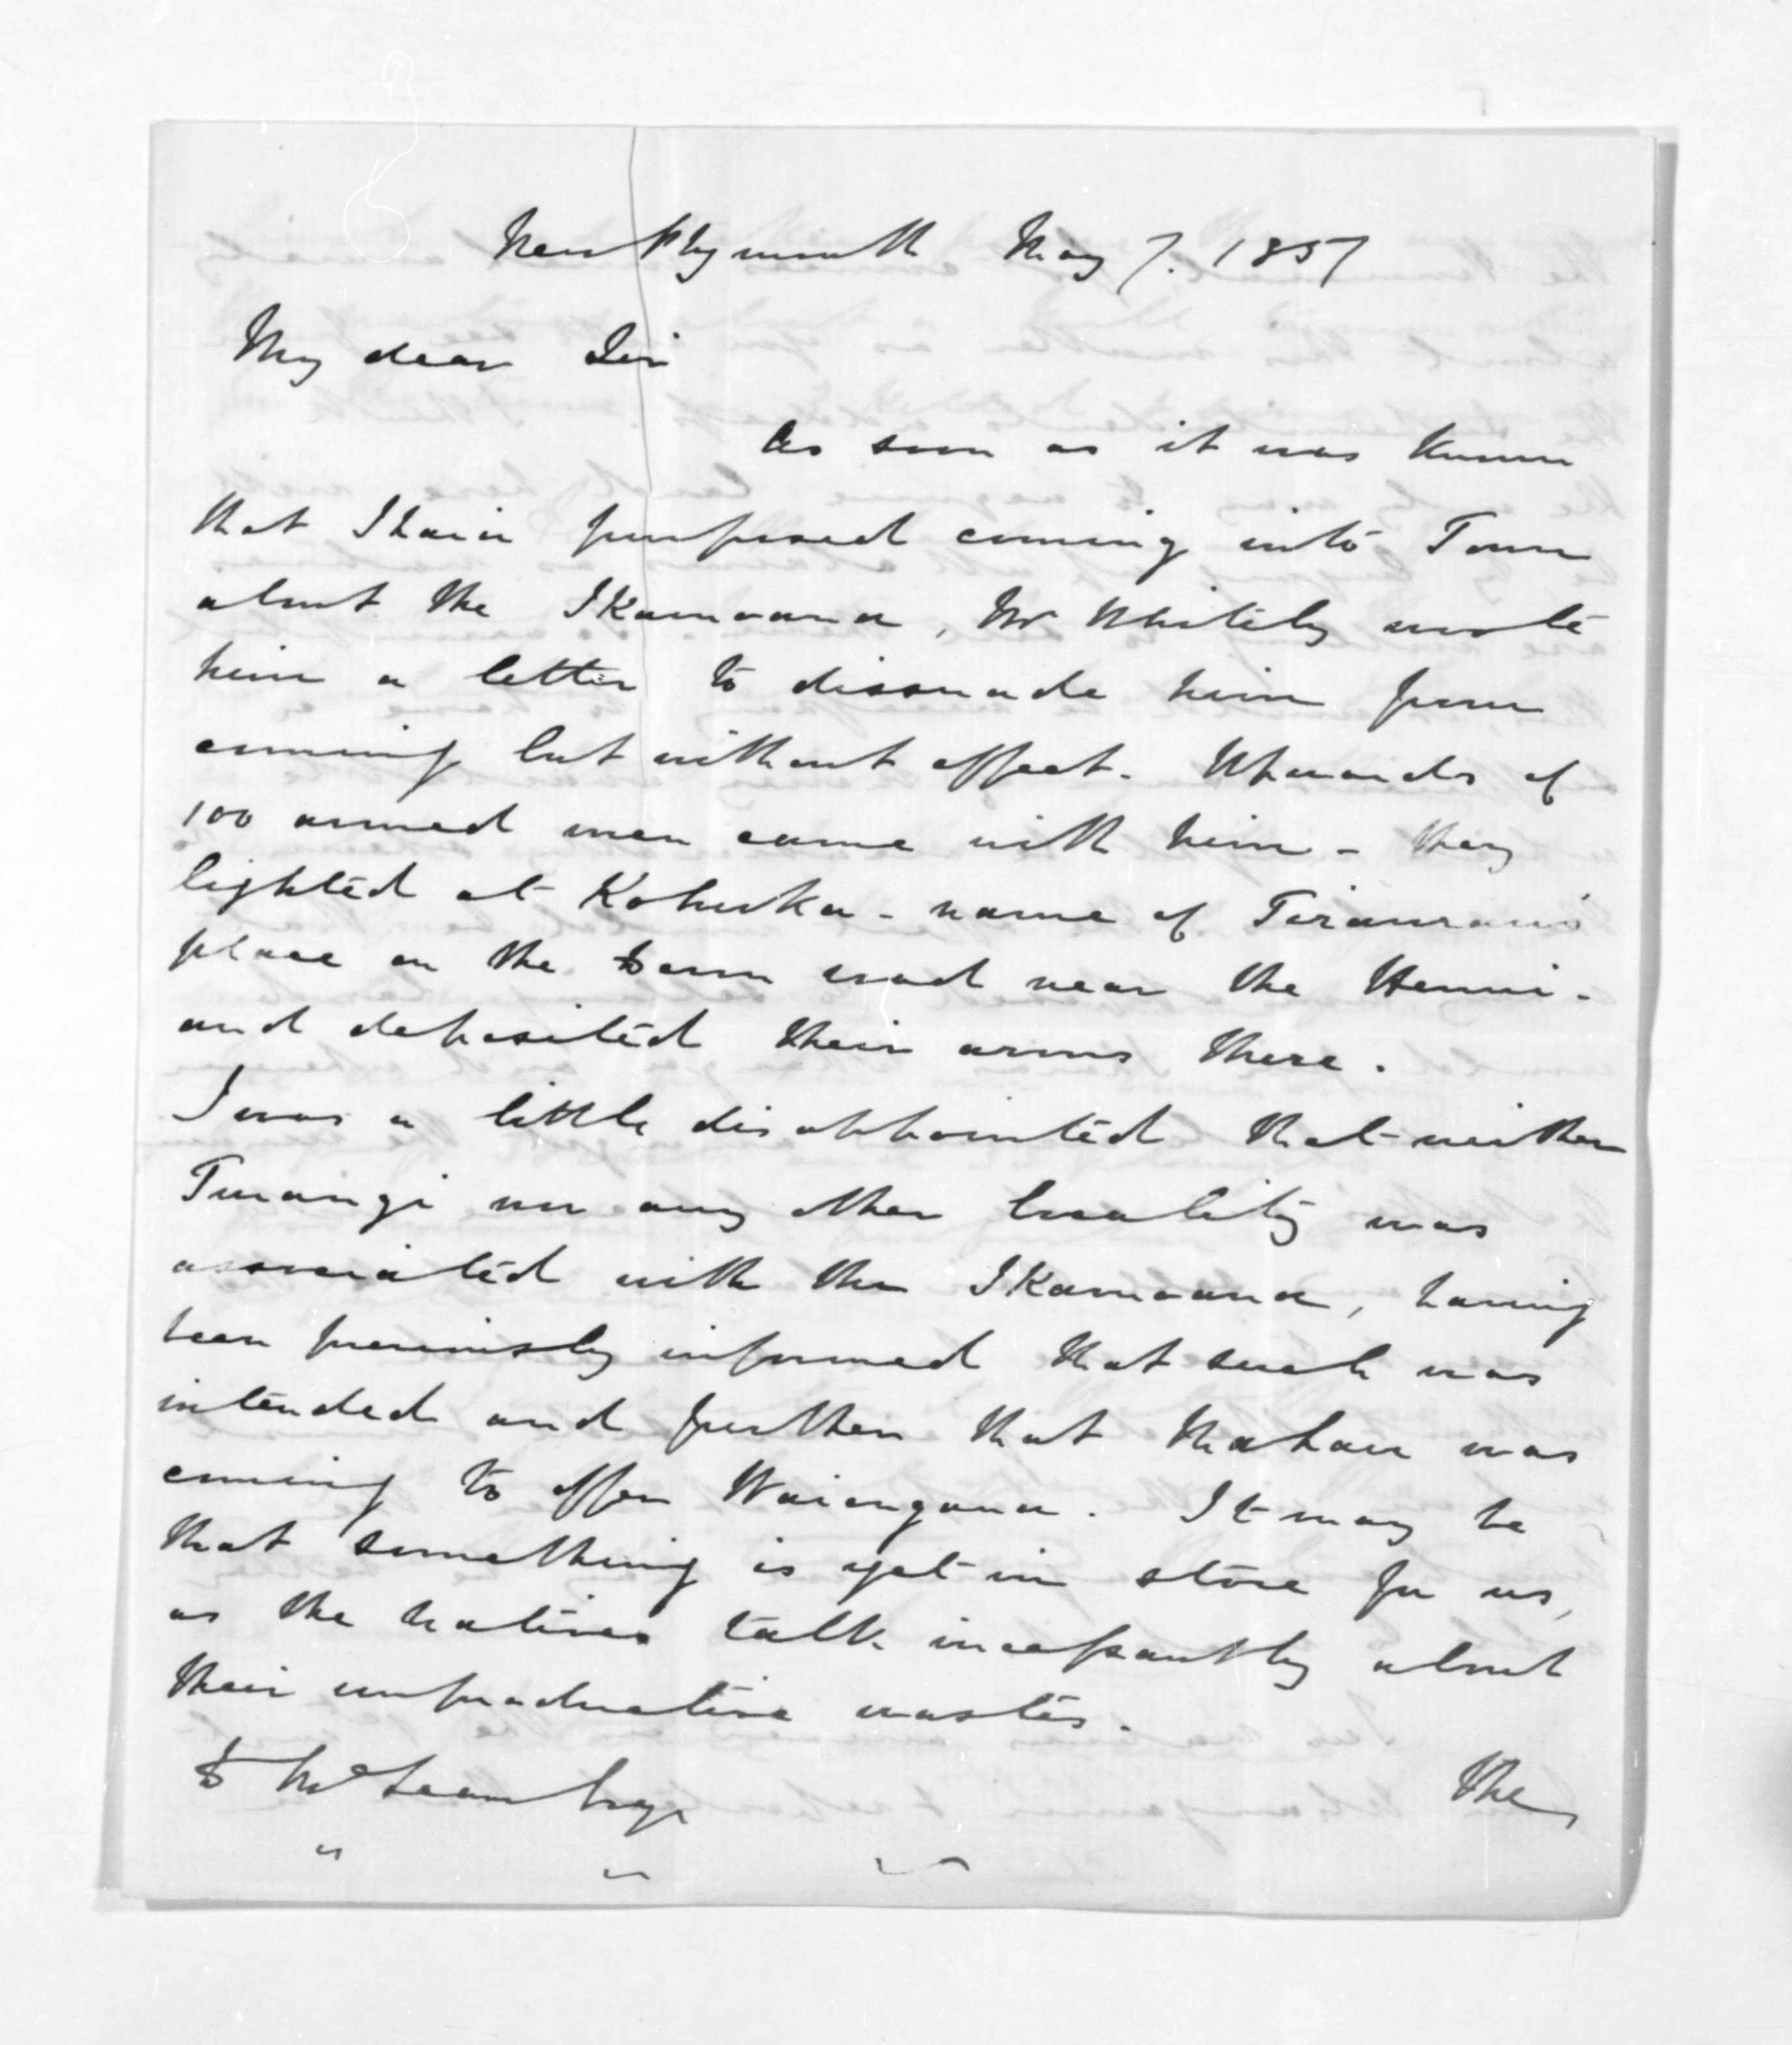 New Plymouth May 7. 1857
My dear Sir
As soon as it was known
that Ihaia purposed coming into Town
about the Ikamoana, Mr Whitely wrote
him a letter to dissuade him from
coming but without effect. Upwards of
100 armed men came with him - they
lighted at - name of
place on the Town road near the Henui -
and deposited their arms there.
I was a little disappointed that neither
Turangi nor any other locality was
associated with the Ikamoana, having
been previously informed that such was
intended and further that Mahau was
coming to offer Waiongana. It may be
that something is yet in store for us,
as the natives talk incessantly about
their unproductive wastes.
To McLean Esqr
The